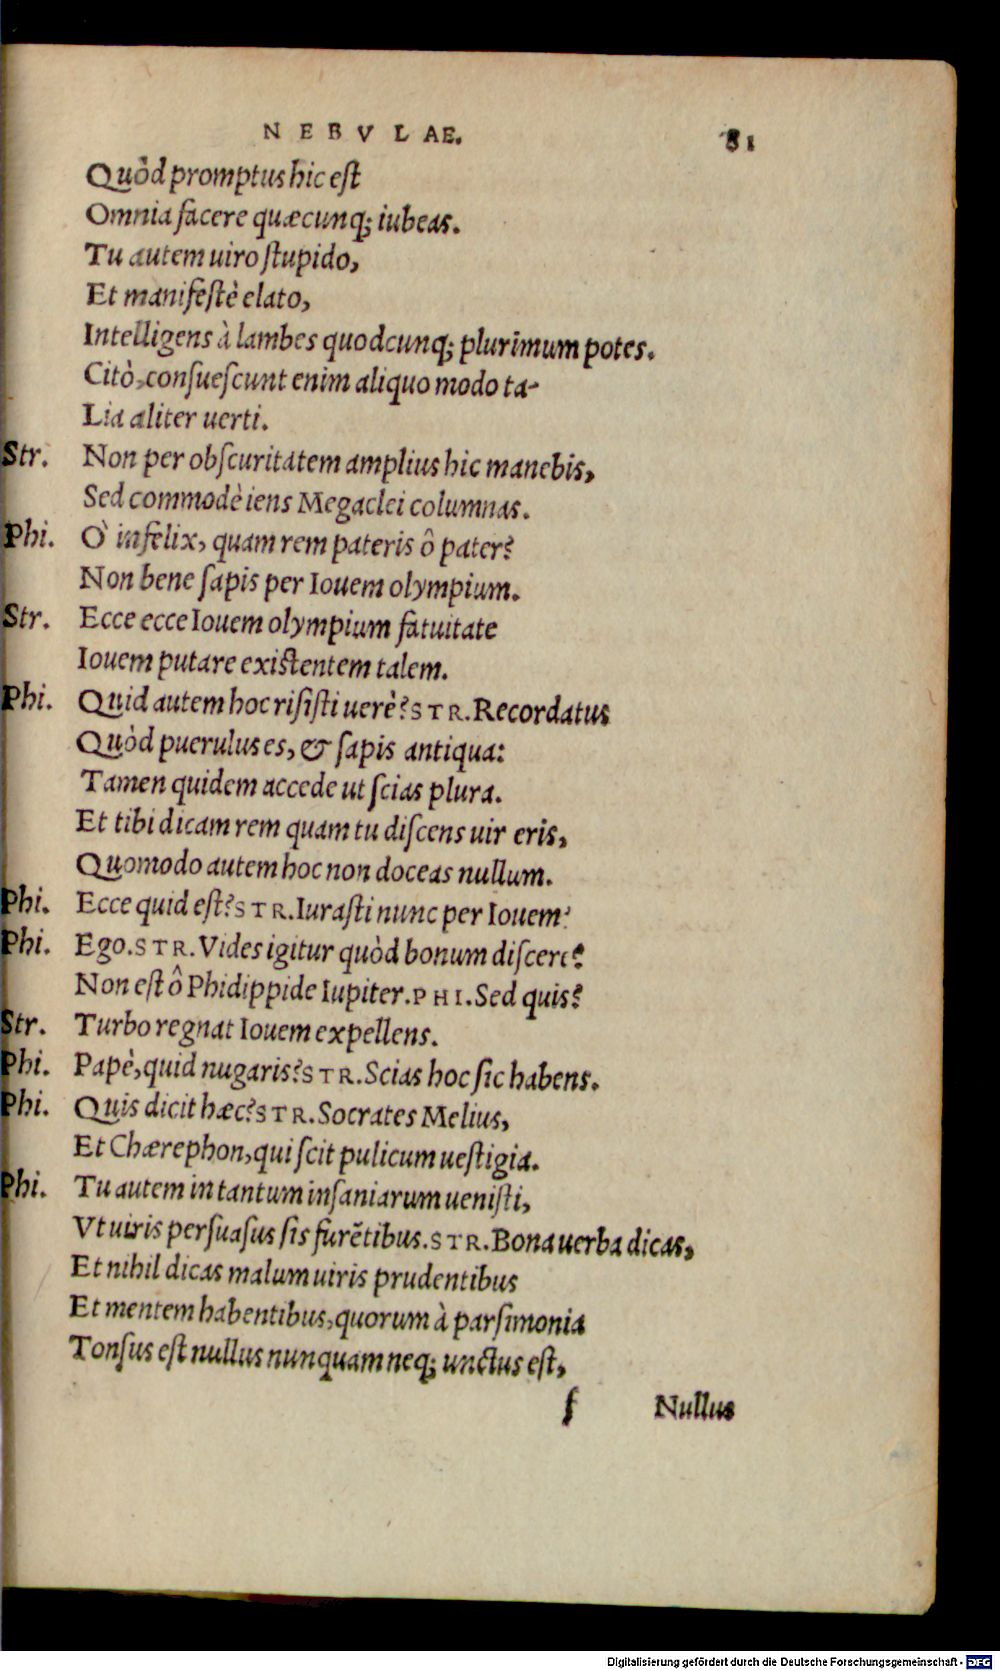 NEBVLAE. 81
Quòd promptus hic est
Omnia facere quæcunq; iubeas.
Tu autem uiro stupido,
Et manifestè elato,
Intelligens à lambes quodcunq; plurimum potes.
Citò, consuescunt enim aliquo modo ta-
Lia aliter uerti.
Str. Non per obscuritatem amplius hic manebis,
Sed commodè iens Megaclei columnas.
Phi. Ò infelix, quam rem pateris ô pater?
Non bene sapis per Iouem olympium.
Str. Ecce ecce Iouem olympium fatuitate
Iouem putare existentem talem.
Phi. Quid autem hoc risisti uerè? STR. Recordatus
Quòd puerulus es, & sapis antiqua:
Tamen quidem accede ut scias plura.
Et tibi dicam rem quam tu discens uir eris,
Quomodo autem hoc non doceas nullum.
Phi. Ecce quid est? STR. Iurasti nunc per Iouem?
Phi. Ego. STR. Vides igitur quòd bonum discere?
Non est ô Phidippide Iupiter. PHI. Sed quis?
Str. Turbo regnat Iouem expellens.
Phi. Papè, quid nugaris? STR. Scias hoc sic habens.
Phi. Quis dicit hæc? STR. Socrates Melius,
Et Chærephon, qui scit pulicum uestigia.
Phi. Tu autem in tantum insaniarum uenisti,
Vt uiris persuasus sis furẽtibus. STR. Bona uerba dicas,
Et nihil dicas malum uiris prudentibus
Et mentem habentibus, quorum à parsimonia
Tonsus est nullus nunquam neq; unctus est,
f Nullus
Digitalisierung gefördert durch die Deutsche Forschungsgemeinschaft - DFG